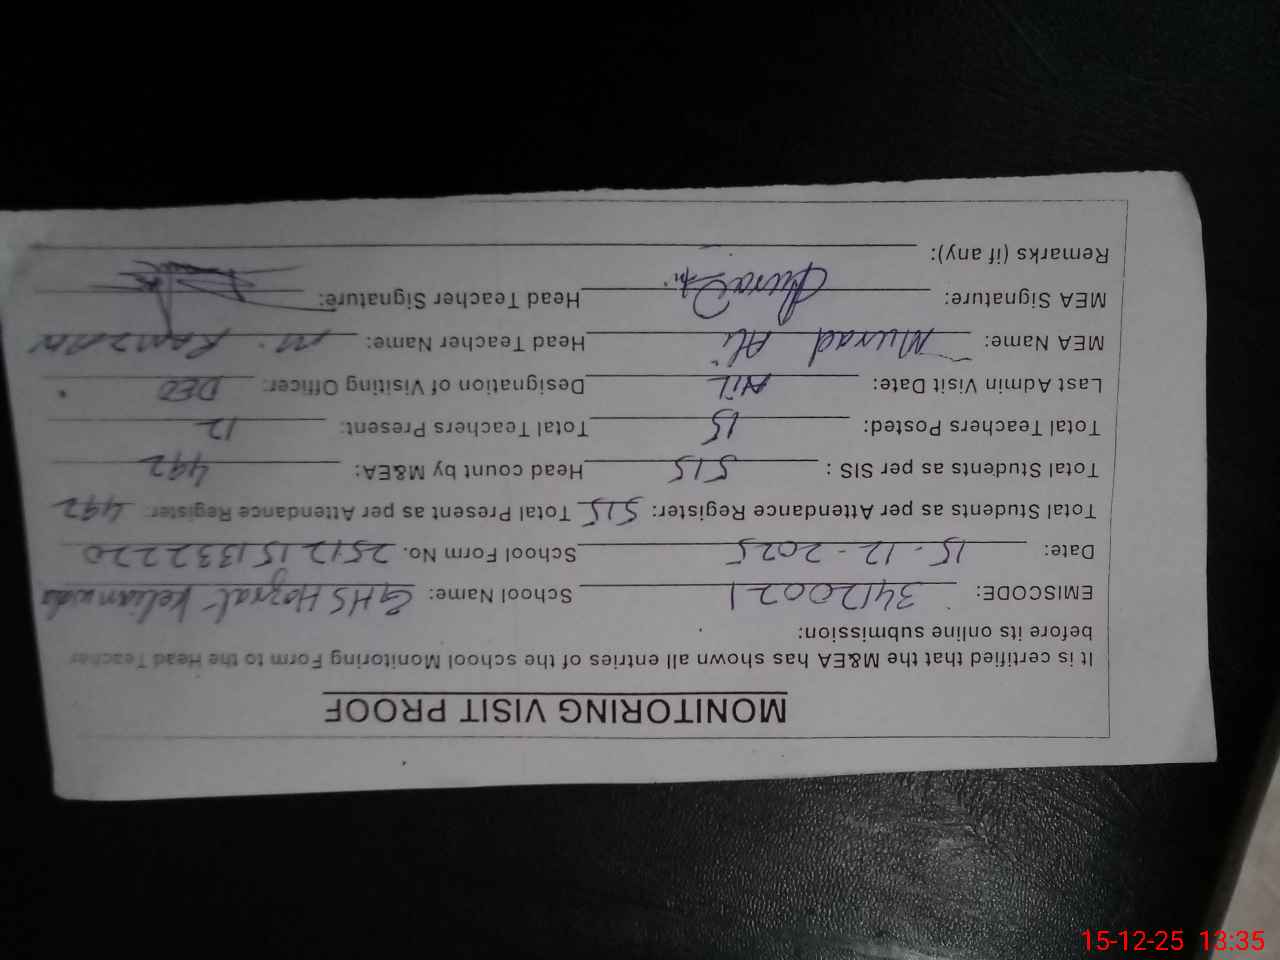 MONITORING VISIT PROOF
It is certified that the M&EA has shown all entries of the school Monitoring Form to the Head Teacher
before its online submission:
EMISCODE: 34120021 School Name: GHS Hazrat Kelianwala
Date: 15-12-2025 School Form No. 2512151332220
Total Students as per Attendance Register: 515 Total Present as per Attendance Register: 492
Total Students as per SIS : 515 Head count by M&EA: 492
Total Teachers Posted: 15 Total Teachers Present: 12
Last Admin Visit Date: Nil Designation of Visiting Officer: DEO
MEA Name: Murad Ali Head Teacher Name: M. Ramzan
MEA Signature: Murad Ali Head Teacher Signature:
Remarks (if any):
15-12-25 13:35